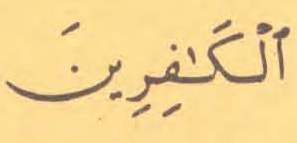 ٱلْكَـٰفِرِينَ